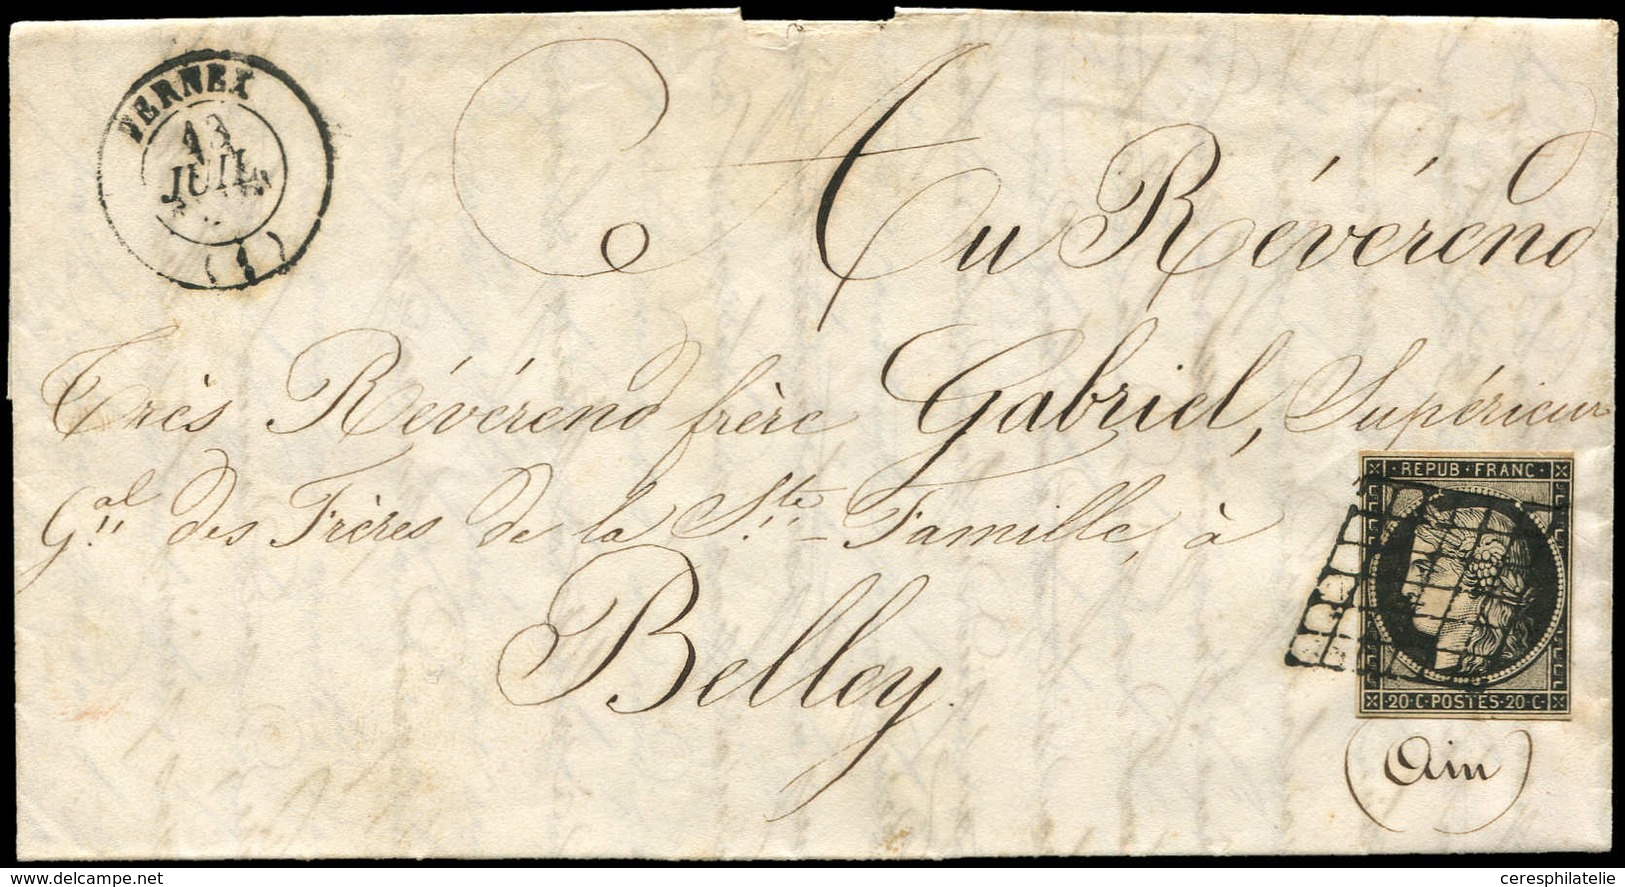 FERNEX
13
JUIL
(1)
Au Révérend
Très Révérend frère Gabriel, Supérieur
Gal. des Frères de la Ste. Famille, à
Belley.
REPUB · FRANC ·
· 20 · C · POSTES · 20 · C ·
(Ain)
www.delcampe.net
ceresphilatelie